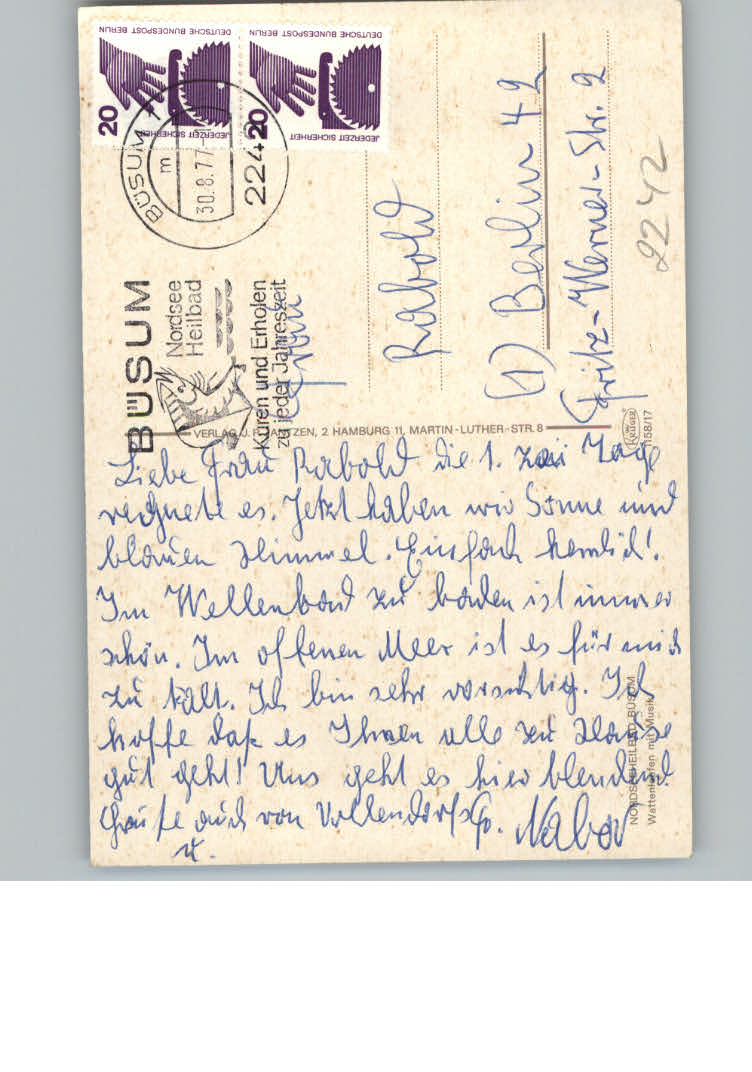 DEUTSCHE BUNDESPOST BERLIN
JEDERZEIT SICHERHEIT
20
DEUTSCHE BUNDESPOST BERLIN
JEDERZEIT SICHERHEIT
20
BÜSUM
m
30.8.77
2242
BÜSUM
Nordsee
Heilbad
Kuren und Erholen
zu jeder Jahreszeit
Rabold
(1) Berlin 42
Fritz-Werner-Str. 2
2242
KRÜGER
1158/17
Liebe Frau Rabold die 1. zwei Tage
regnete es. Jetzt haben wir Sonne und
blauen Himmel. Einfach herrlich!
Im Wellenbad zu baden ist immer
schön. Im offenen Meer ist es für mich
zu kalt. Ich bin sehr vorsichtig. Ich
hoffe daß es Ihnen alle zu Hause
gut geht! Uns geht es hier blendend
Grüße auch von
u.
NORDSEEHEILBAD BÜSUM
Wattenlaufen mit Musik